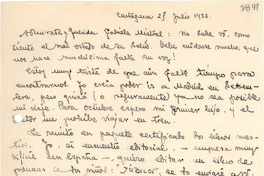 3841
Cartagena 25 Julio 1933.
Admirada y querida Gabriela Mistral: no sabe Vd. como
siento el mal estado de su salud. Debe cuidarse mucho, que
nos hace muchísima falta su voz!
Estoy muy triste de que aún falte tiempo para
encontrarnos. Yo creía poder ir a Madrid en Septiembre,
pero quizá (o seguramente) ya no sea posible
mi viaje. Para octubre espero mi primer hijo, y el
me prohibe viajar en tren.
Le remito en paquete certificado dos
Yo, si encuentro editorial - empresa muy
difícil en España -, quiero editar un libro de
poemas a